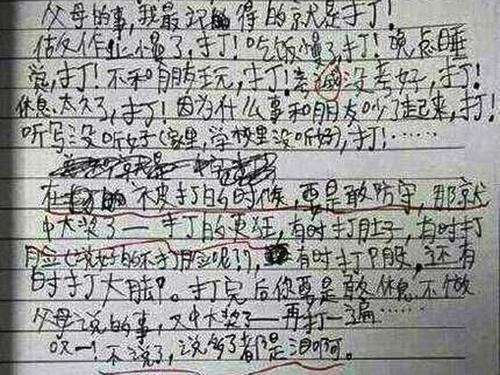 父母的事,我最记的得的就是打!
做作业慢了,打!吃饭慢了,打!晚点睡
觉,打!不和朋友玩,打!考试没考好,打!
休息太久了,打!因为什么事和朋友吵了起来,打!
听写没听好(家里,学校里没听好),打!……
在不被打的时候,要是敢防守,那就
中大奖了——打的更狂,有时打肚子,有时打
脸(说好的不打脸呢!?),有时打P股,还有
时打大脚。打完后你要是敢休息不做
父母说的事,又中大奖了——再打一遍……
哎!不说了,说多了都是泪啊。